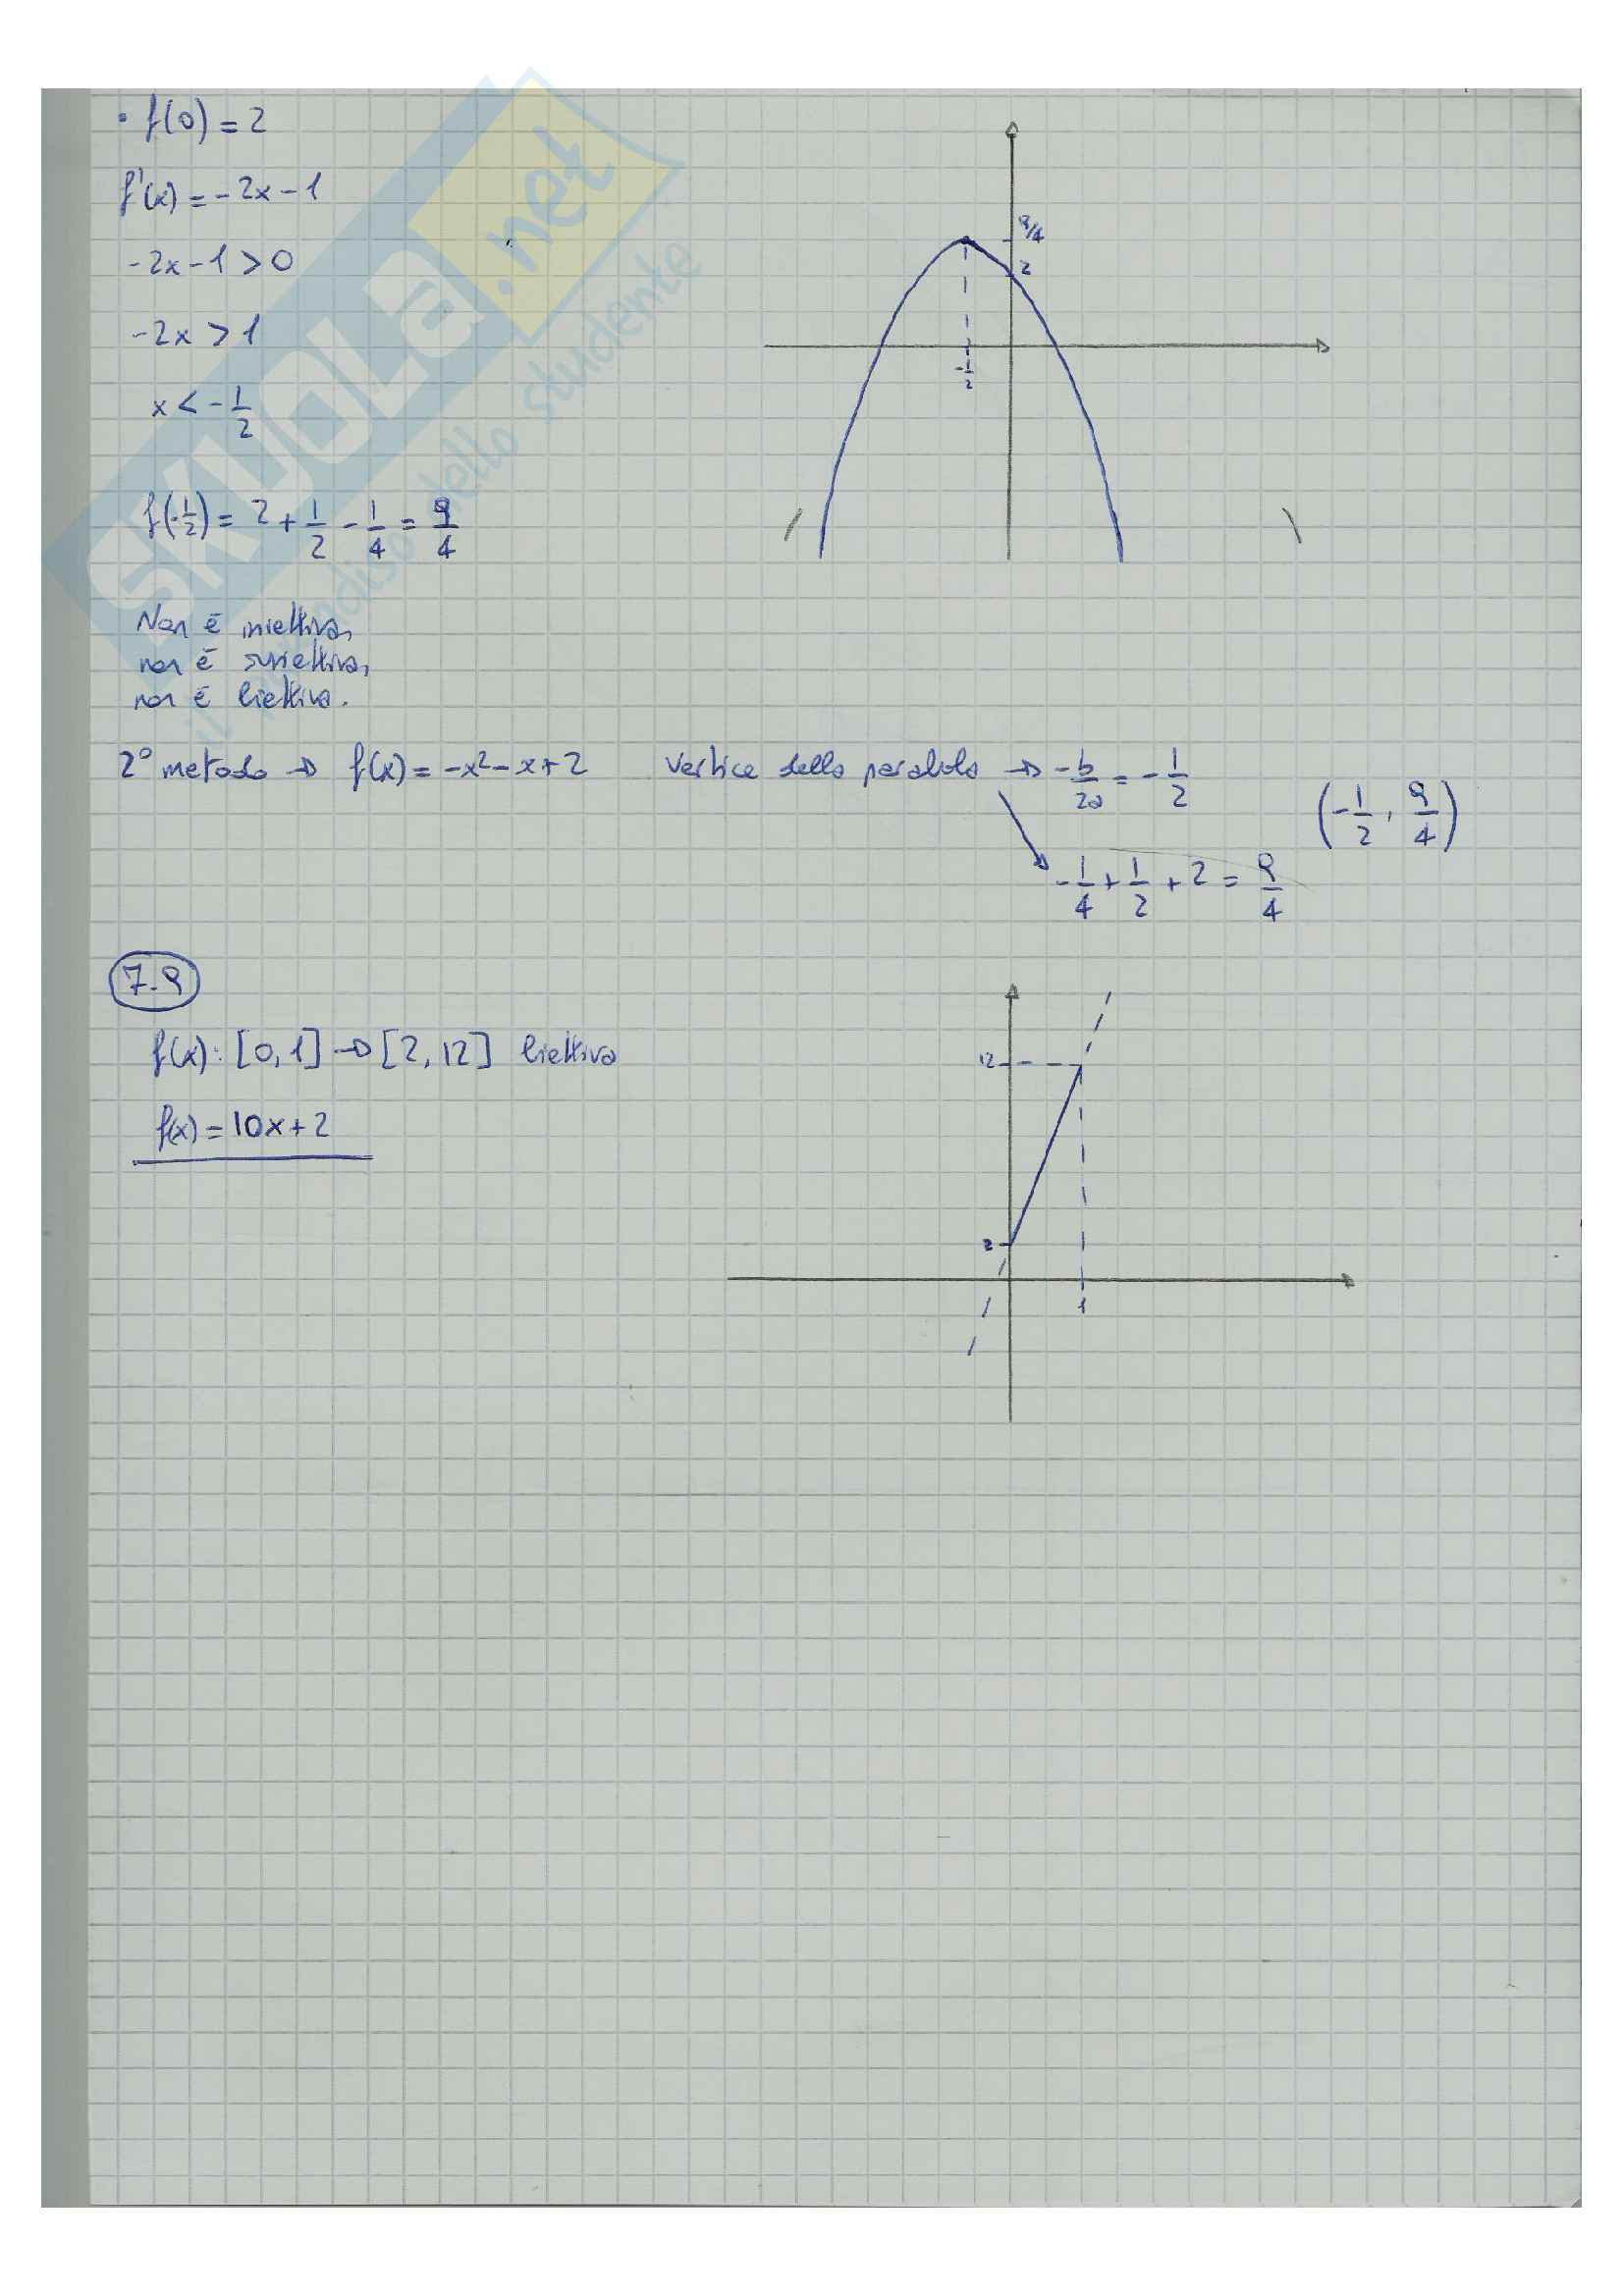 • f(0) = 2
f'(x) = -2x - 1
-2x - 1 > 0
-2x > 1
x < - 1/2
f(-1/2) = 2 + 1/2 - 1/4 = 9/4
9/4
2
-1/2
Non è iniettiva,
non è suriettiva,
non è biettiva.
2° metodo → f(x) = -x² - x + 2 vertice della parabola → -b/2a = - 1/2
(-1/2, 9/4)
-1/4 + 1/2 + 2 = 9/4
7.9
f(x): [0,1] → [2,12] biettiva
f(x) = 10x + 2
12
2
1
SKUOLA.net
il paradiso dello studente